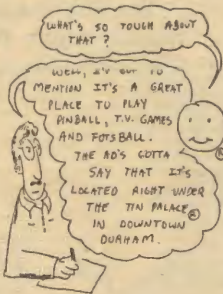 WHAT'S SO TOUGH ABOUT
THAT ?
WELL, I'V GOT TO
MENTION IT'S A GREAT
PLACE TO PLAY
PINBALL, T.V. GAMES
AND FOTSBALL.
THE AD'S GOTTA
SAY THAT IT'S
LOCATED RIGHT UNDER
THE TIN PALACE ®
IN DOWNTOWN
DURHAM.
®